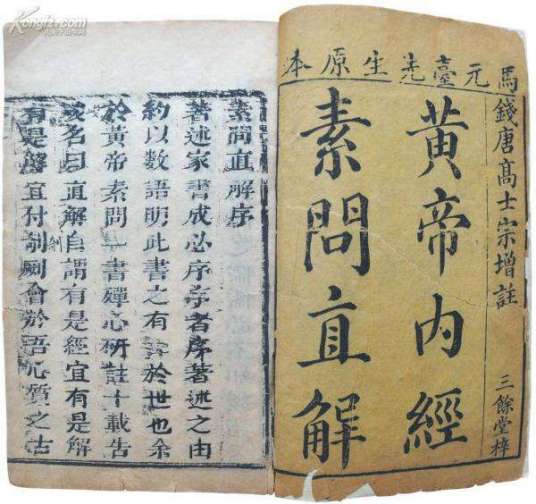 馬元臺先生原本
錢唐高士宗增註
三餘堂梓
黃帝內經
素問直解
素問直解序
著述家書成必序序者序著述之由
約以數語明此書之有裨於世也余
於黃帝素問一書殫心研註十載告
成名曰直解自謂有是經宜有是解
有是解宜付剞劂會於吾心質之古
Kongfz.com